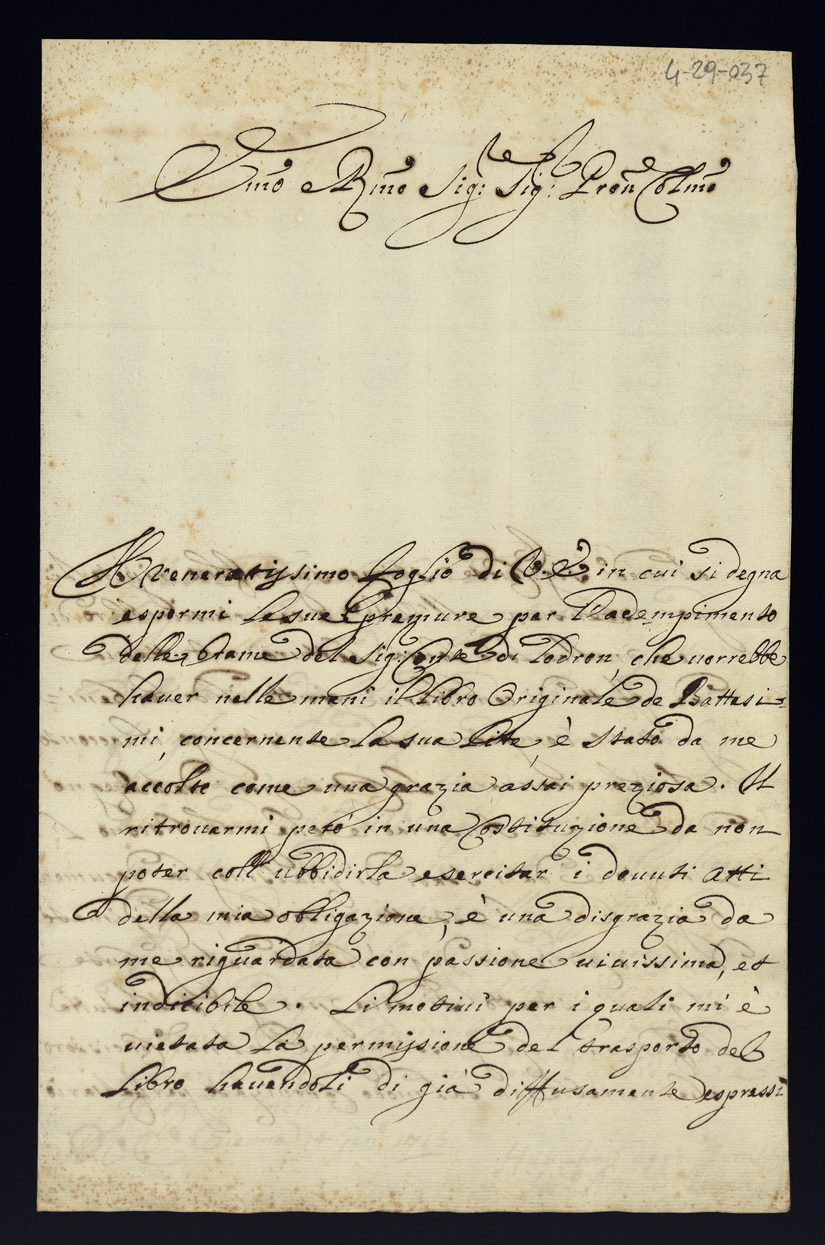 4-29-037
Emo e Rmo Sig: Sig: Pron Colmo
Il veneratissimo foglio di V. E. in cui si degna
espormi le sue premure per l'adempimento
delle brame del Sig: Conte di Lodron, che vorrebbe
haver nelle mani il libro Originale de Battesi=
mi, concernente la sua lite, è stato da me
accolto come una grazia assai preziosa. Il
ritrovarmi però in una Costituzione da non
poter coll'ubbidirla esercitar i dovuti atti
della mia obligazione, è una disgrazia da
me riguardata con passione vivissima, et
indicibile. Li motivi per i quali mi è
vietata la permissione del trasporto del
libro havendoli di già diffusamente espressi